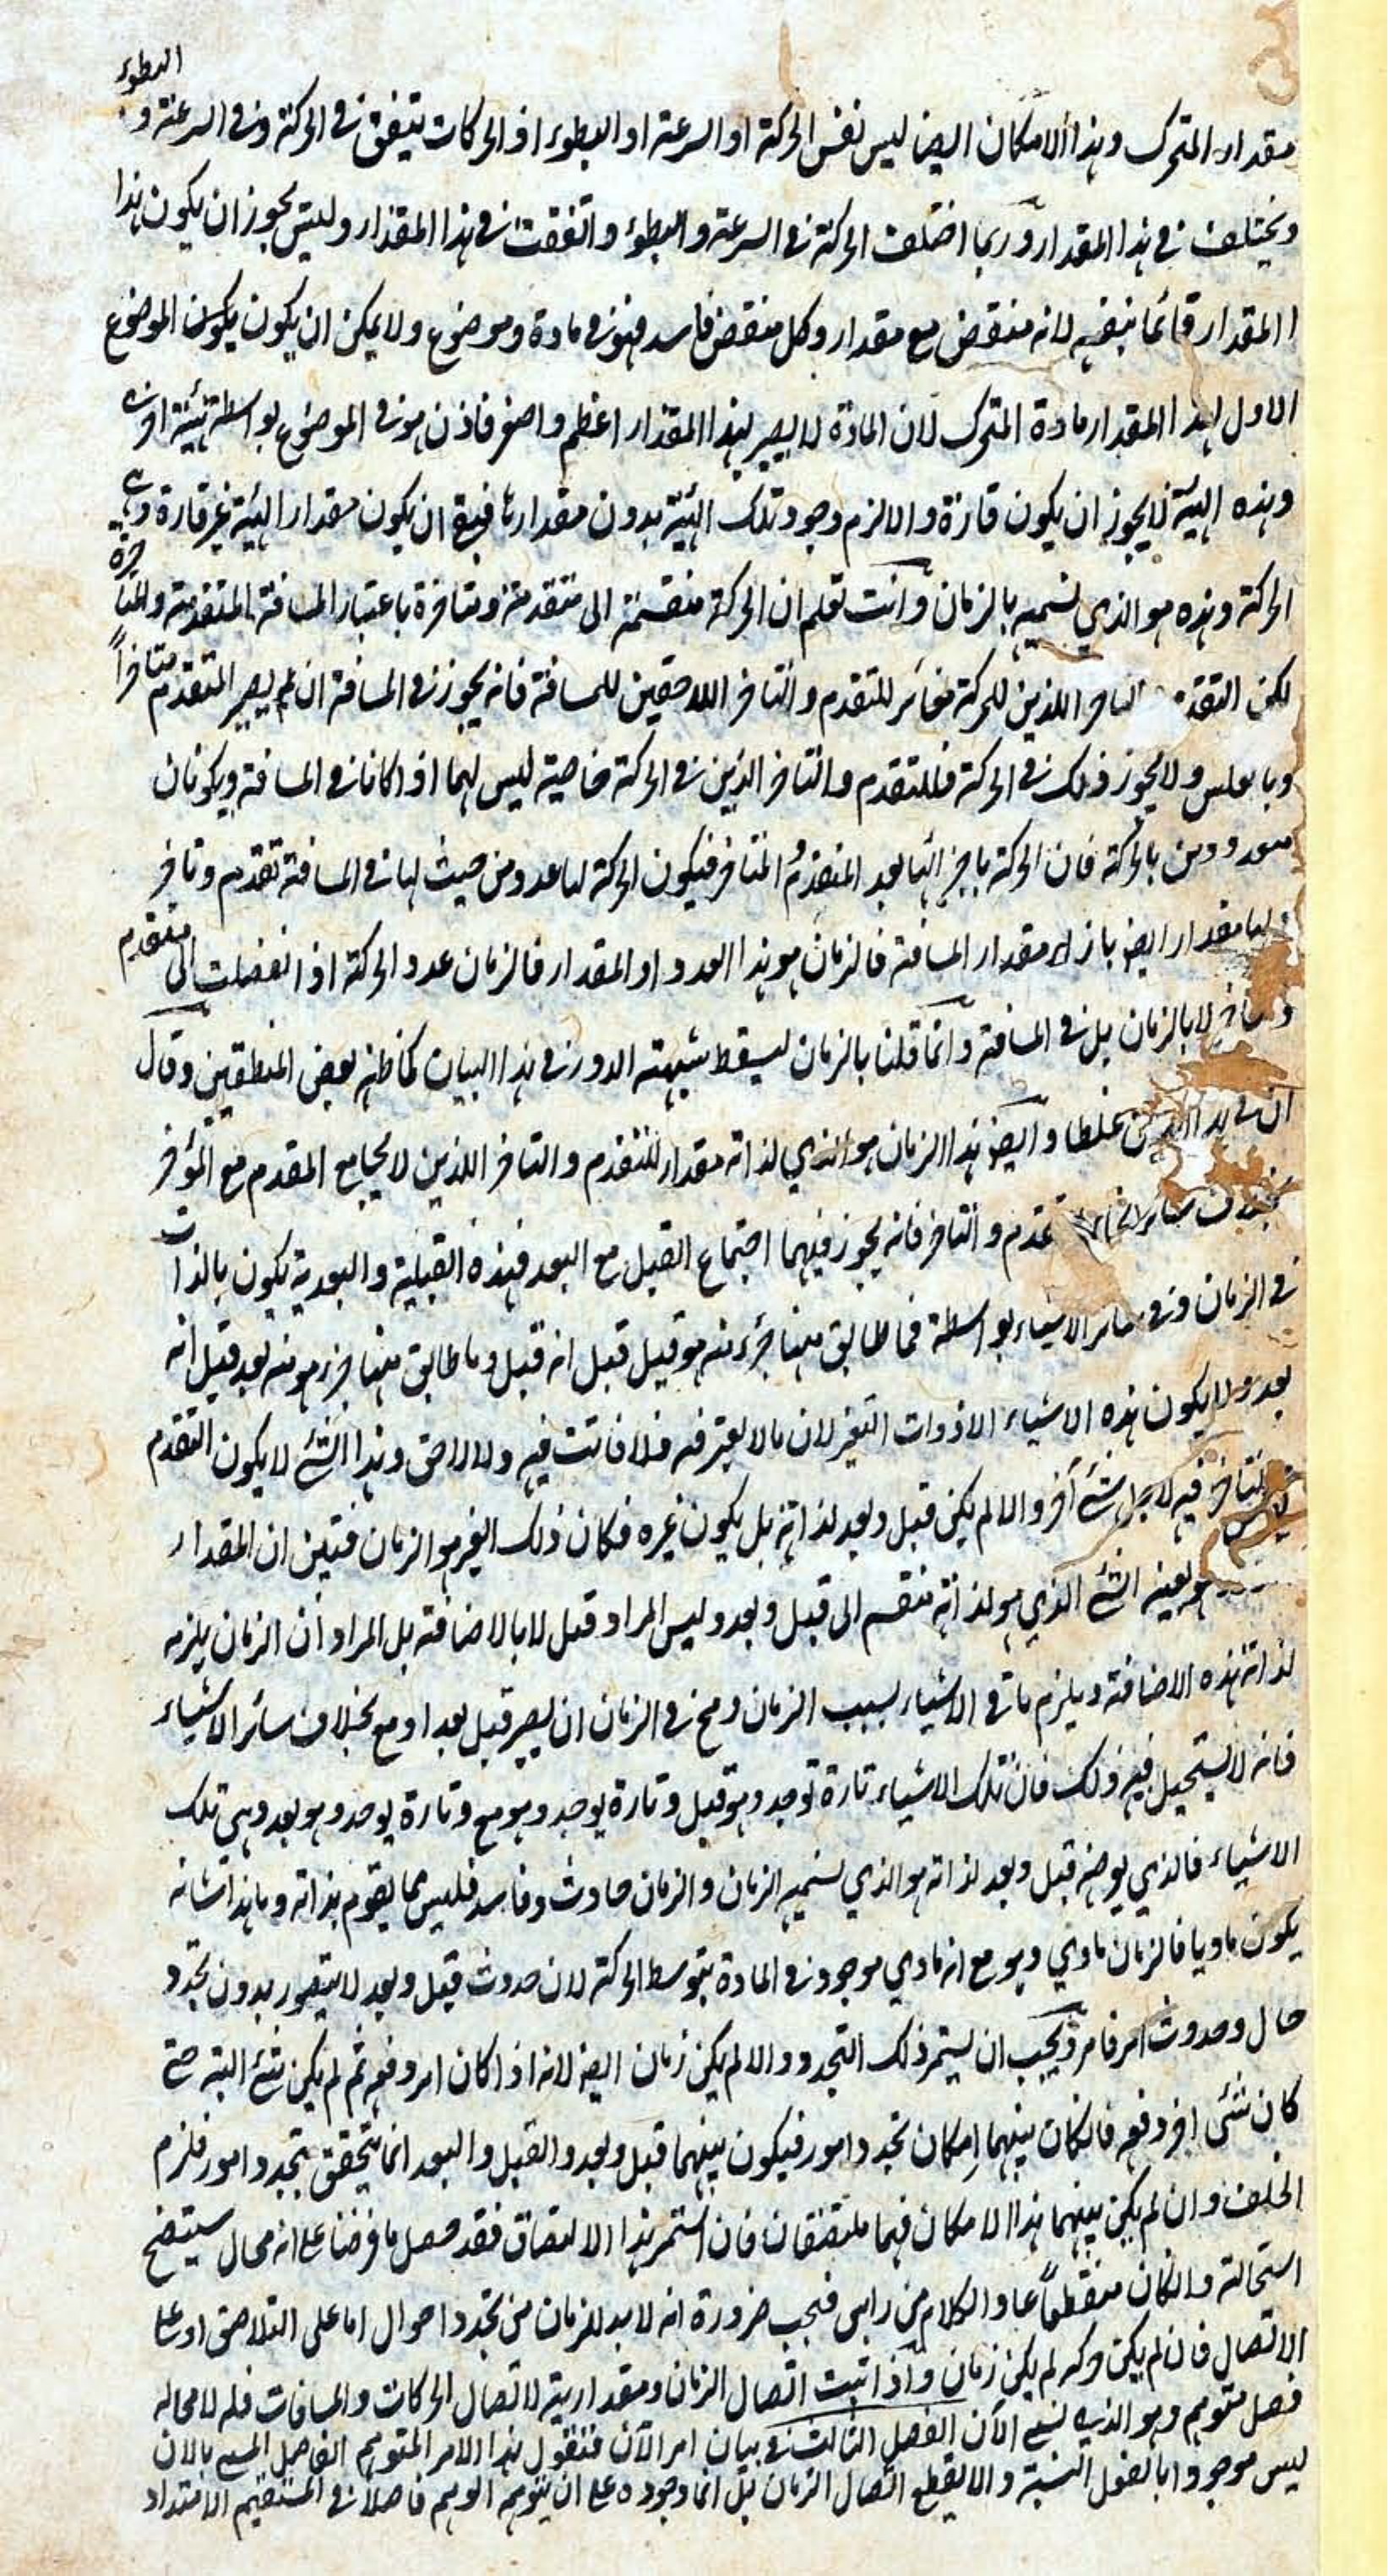 البطوء
مقدار المتحرك وهذا الامكان ايضا ليس نفس الحركة او السرعة او البطوء اذ الحركات يتفق في الحركة وفي السرعة و
ويختلف في هذا المقدار وربما اختلف الحركة في السرعة والبطوء واتفقت في هذا المقدار وليس يجوز ان يكون هذا
المقدار قائما بنفسه لانه منقض مع مقدار وكل منقض فاسد فهو في مادة وموضوع ولا يمكن ان يكون يكون الموضوع
الاول لهذا المقدار مادة المتحرك لان المادة لا يصير بهذا المقدار اعظم واصغر فاذن هو في الموضوع بواسطة هيئة اخرى
وهذه الهيئة لا يجوز ان يكون قارة والا لزم وجود تلك الهيئة بدون مقدارها فبقي ان يكون مقدار الهيئة غير قارة وهي
الحركة وهذه هو الذي نسميه بالزمان وانت تعلم ان الحركة منقسمة الى متقدمة ومتاخرة باعتبار المسافة المتقدمة والمتاخرة
لكن التقدم التاخر اللذين للحركة مغائر للتقدم والتاخر اللاحقين للمسافة فانه يجوز في المسافة ان لم يصير المتقدم متاخراً
وبالعكس ولا يجوز ذلك في الحركة فللتقدم والتاخر الذين في الحركة خاصية ليس لهما اذا كانا في المسافة ويكونان
معدودين بالحركة فان الحركة باجزائها يعد المتقدم والمتاخر فيكون الحركة لها عدد من حيث لها في المسافة تقدم وتاخر
لها مقدار ايض بازاء مقدار المسافة فالزمان هو هذا العدد او المقدار فالزمان عدد الحركة اذ انفصلت الى متقدم
ومتاخر لا بالزمان بل في المسافة وانما قلنا بالزمان ليسقط شبهته الدور في هذا البيان كما ظنه بعض المنطقيين وقال
ان في هذا غلطا وايض هذا الزمان هو الذي لذاته مقدار للتقدم والتاخر اللذين لا يجامع المقدم مع المؤخر
بخلاف سائر تقدم والتاخر فانه يجوز فيهما اجتماع القبل مع البعد فهذه القبلية والبعدية يكون بالذات
في الزمان وفي سائر الاشياء بواسطة فما طابق منها جزء منه هو قبل قيل انه قبل وما طابق منها جزء هو منه بعد قيل انه
بعد ولا يكون هذه الاشياء الا ذوات التغير لان ما لا يغير فيه فلا فائت فيه ولا لاحق وهذا الشئ لا يكون التقدم
والتاخر فيه لاجل شئ آخر والا لم يكن قبل وبعد لذاته بل يكون غيره فكان ذلك الغير هو الزمان فتبين ان المقدار
هو بعينه الشئ الذي هو لذاته منقسم الى قبل وبعد وليس المراد قبل لا بالاضافة بل المراد ان الزمان يلزمه
لذاته هذه الاضافة ويلزم باقي الاشياء بسبب الزمان ومح في الزمان ان يصير قبل بعد او مع بخلاف سائر الاشياء
فانه لا يستحيل فيه ذلك فان تلك الاشياء تارة توجد وهو قبل وتارة يوجد وهو مع وتارة يوجد وهو بعد وهي تلك
الاشياء فالذي يوصف قبل وبعد لذاته هو الذي نسميه الزمان والزمان حادث وفاسد فليس مما يقوم بذاته وما هذا شانه
يكون ماديا فالزمان مادي وهو مع انه مادي موجود في المادة بتوسط الحركة لان حدوث قبل وبعد لا يتصور بدون تجدد
حال وحدوث امر فامر ويجب ان يستمر ذلك التجدد والا لم يكن زمان ايض لانه اذا كان امر دفعه ثم لم يكن شئ البته حتى
كان شئ اخر دفعه فان كان بينهما امكان تجدد امور فيكون بينهما قبل وبعد والقبل والبعد انما يتحقق بتجدد امور فلزم
الخلف وان لم يكن بينهما هذا الامكان فهما ملتصقان فان استمر هذا الالتصاق فقد حصل ما فرضنا على انه محال سيتضح
استحالته وان كان منقطعاً عاد الكلام من راس فيجب ضرورة انه لا بد للزمان من تجدد احوال اما على التلاحق او على
الاتصال فان لم يكن حركة لم يكن زمان واذا ثبت اتصال الزمان ومقداريته لاتصال الحركات والمسافات فله لا محاله
فصل متوهم وهو الذي نسمى الآن الفصل الثالث في بيان امر الآن فنقول هذا الامر المتوهم الفاصل المسمى بالان
ليس موجودا بالفعل النسبة والا لقطع اتصال الزمان بل انما وجوده على ان يتوهمه الوهم فاصلا في المستقيم الامتداد